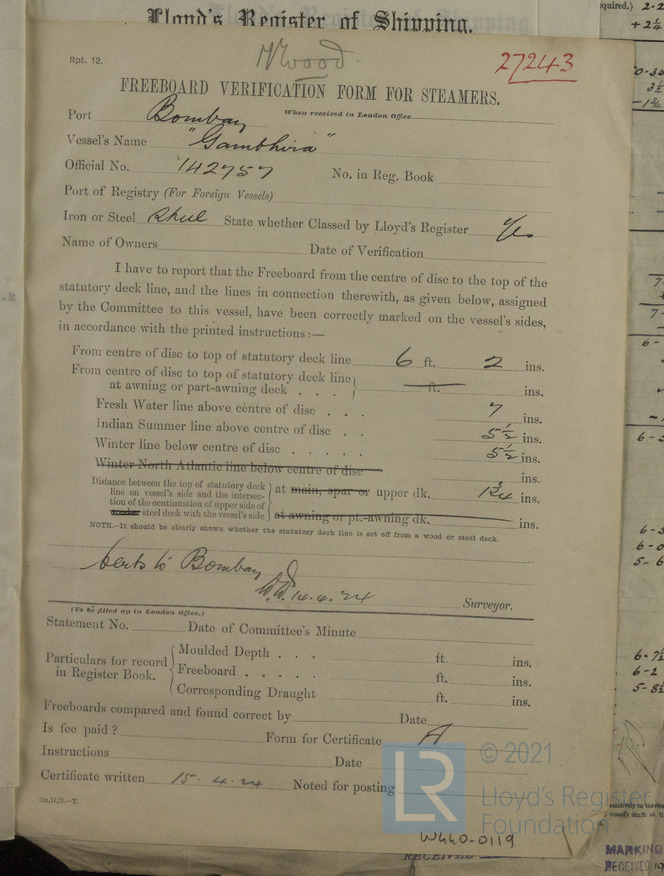 Lloyd's Register of Shipping.
Rpt. 12.
Wood
27243
FREEBOARD VERIFICATION FORM FOR STEAMERS.
Port Bombay When received in London Office
Vessel's Name "Gambhira"
Official No. 142757 No. in Reg. Book
Port of Registry (For Foreign Vessels)
Iron or Steel Steel State whether Classed by Lloyd's Register Yes
Name of Owners Date of Verification
I have to report that the Freeboard from the centre of disc to the top of the
statutory deck line, and the lines in connection therewith, as given below, assigned
by the Committee to this vessel, have been correctly marked on the vessel's sides,
in accordance with the printed instructions:—
From centre of disc to top of statutory deck line 6 ft. 2 ins.
From centre of disc to top of statutory deck line
at awning or part-awning deck . . . ft. ins.
Fresh Water line above centre of disc . . . 7 ins.
Indian Summer line above centre of disc . . 5½ ins.
Winter line below centre of disc . . . . . 5½ ins.
Winter North Atlantic line below centre of disc ins.
Distance between the top of statutory deck
line on vessel's side and the intersec-
tion of the continuation of upper side of
steel deck with the vessel's side
at main, spar or upper dk. 1¾ ins.
at awning or pt.-awning dk. ins.
NOTE.—It should be clearly shown whether the statutory deck line is set off from a wood or steel deck.
Certs to Bombay
14.4.24 Surveyor.
(To be filled up in London Office.)
Statement No. Date of Committee's Minute
Particulars for record
in Register Book.
Moulded Depth . . . ft. ins.
Freeboard . . . . . ft. ins.
Corresponding Draught ft. ins.
Freeboards compared and found correct by Date
Is fee paid? Form for Certificate A
Instructions Date
Certificate written 15.4.24 Noted for posting
2m,11,21.—T.
LR
© 2021
Lloyd's Register
Foundation
W440-0119
RECEIVED
quired.) 2.2
+ 2¼
6-2
MARKING
RECEIVED